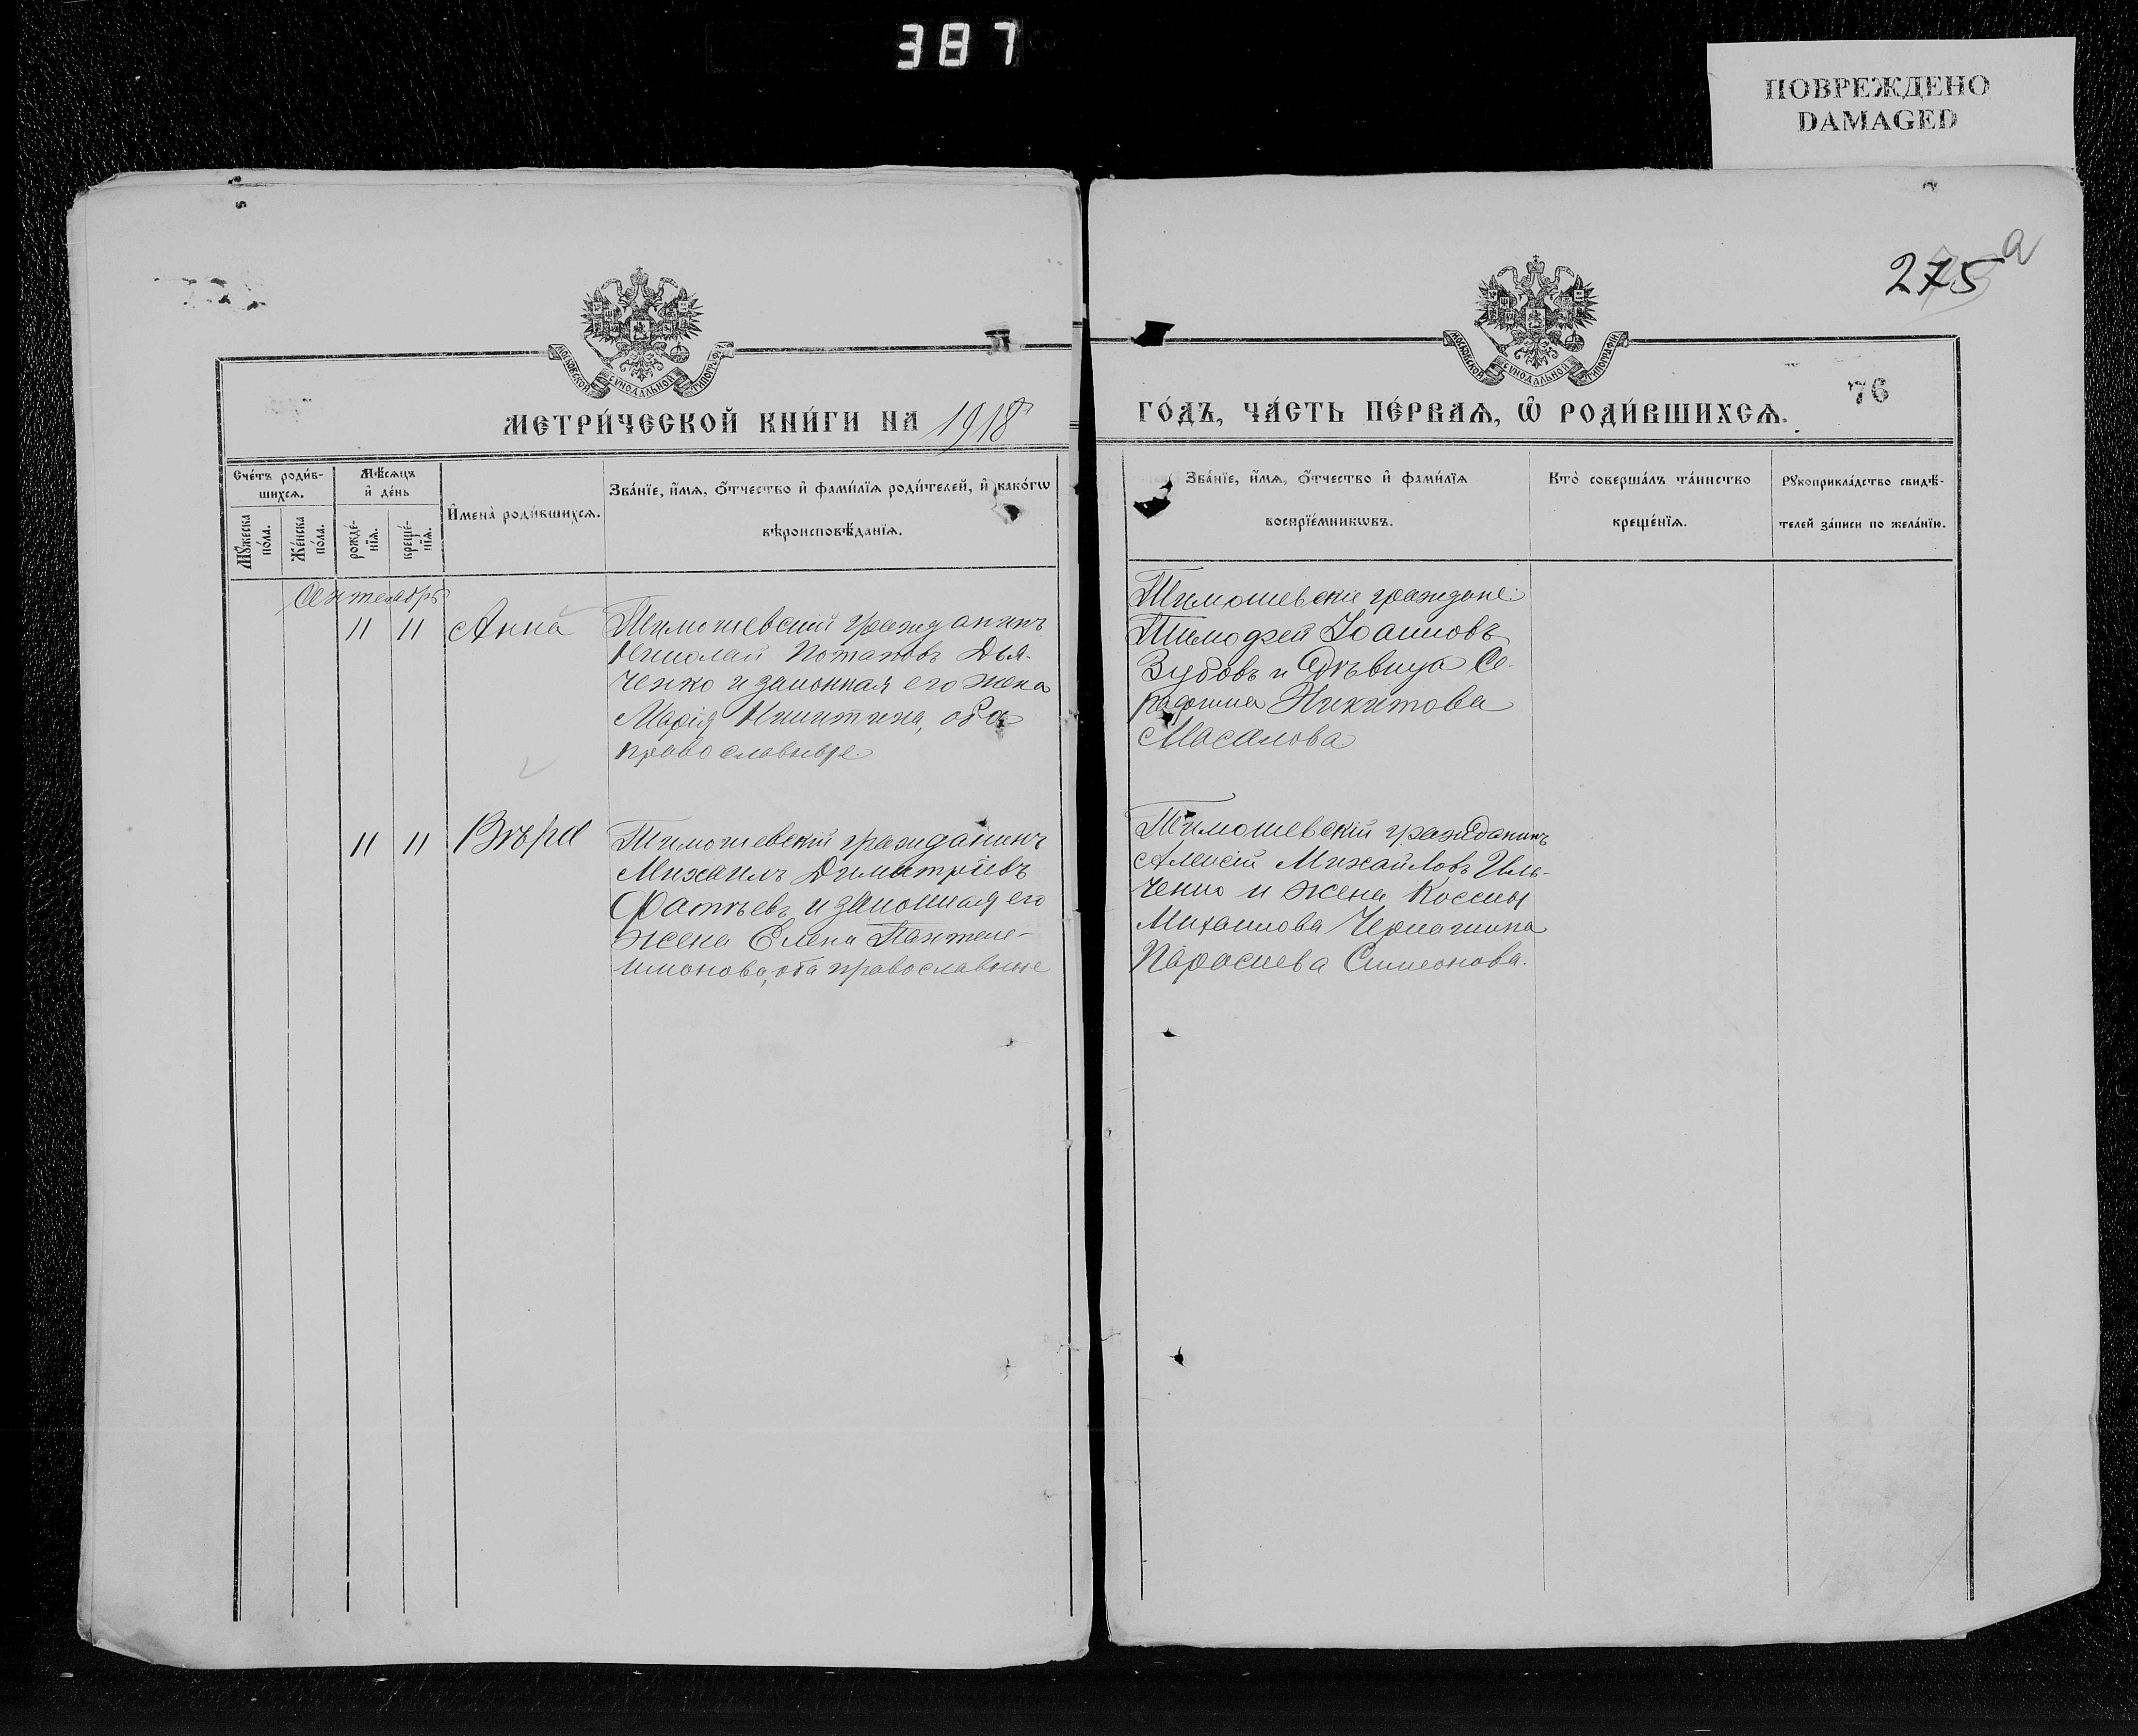 387
ПОВРЕЖДЕНО
DAMAGED
275 а
МОСКОВСКОЙ СѴНОДАЛЬНОЙ ТИПОГРАФІИ
МОСКОВСКОЙ СѴНОДАЛЬНОЙ ТИПОГРАФІИ
76
МЕТРИ́ЧЕСКОЙ КНИ́ГИ НА 1918
ГО́ДЪ, ЧА́СТЬ ПЕ́РВАѦ, Ѡ҆ РОДИ́ВШИХСѦ.
Сче́тъ роди́в-
шихсѧ.
Мꙋ́жеска по́ла.
Же́нска по́ла.
Мѣ́сѧцъ
и҆ де́нь
рожде́-
нїѧ.
креще́-
нїѧ.
И҆мена̀ роди́вшихсѧ.
Зва́нїе, и҆́мѧ, ѻ҆́тчество и҆ фами́лїѧ роди́телей, и҆ како́гѡ
вѣроисповѣ́данїѧ.
Зва́нїе, и҆́мѧ, ѻ҆́тчество и҆ фами́лїѧ
воспрїе́мникѡвъ.
Кто̀ соверша́лъ та́инство
креще́нїѧ.
Рꙋкоприкла́дство свидѣ́-
телей за́писи по жела́нїю.
Сентябрь
11 11 Анна
Тимошевскій гражданинъ
Николай Потаповъ Дья-
ченко и законная его жена
Марія Никитина, оба
православные.
Тимошевскіе граждане:
Тимофей Іоанновъ
Зубовъ и дѣвица Се-
рафима Никитова
Масалова
11 11 Вѣра
Тимошевскій гражданинъ
Михаилъ Димитріевъ
Фатѣевъ и законная его
жена Елена Пантеле-
имонова, оба православные
Тимошевскій гражданинъ
Алексій Михайловъ Иль-
ченко и жена Козмы
Михаилова
Параскева Симеонова.